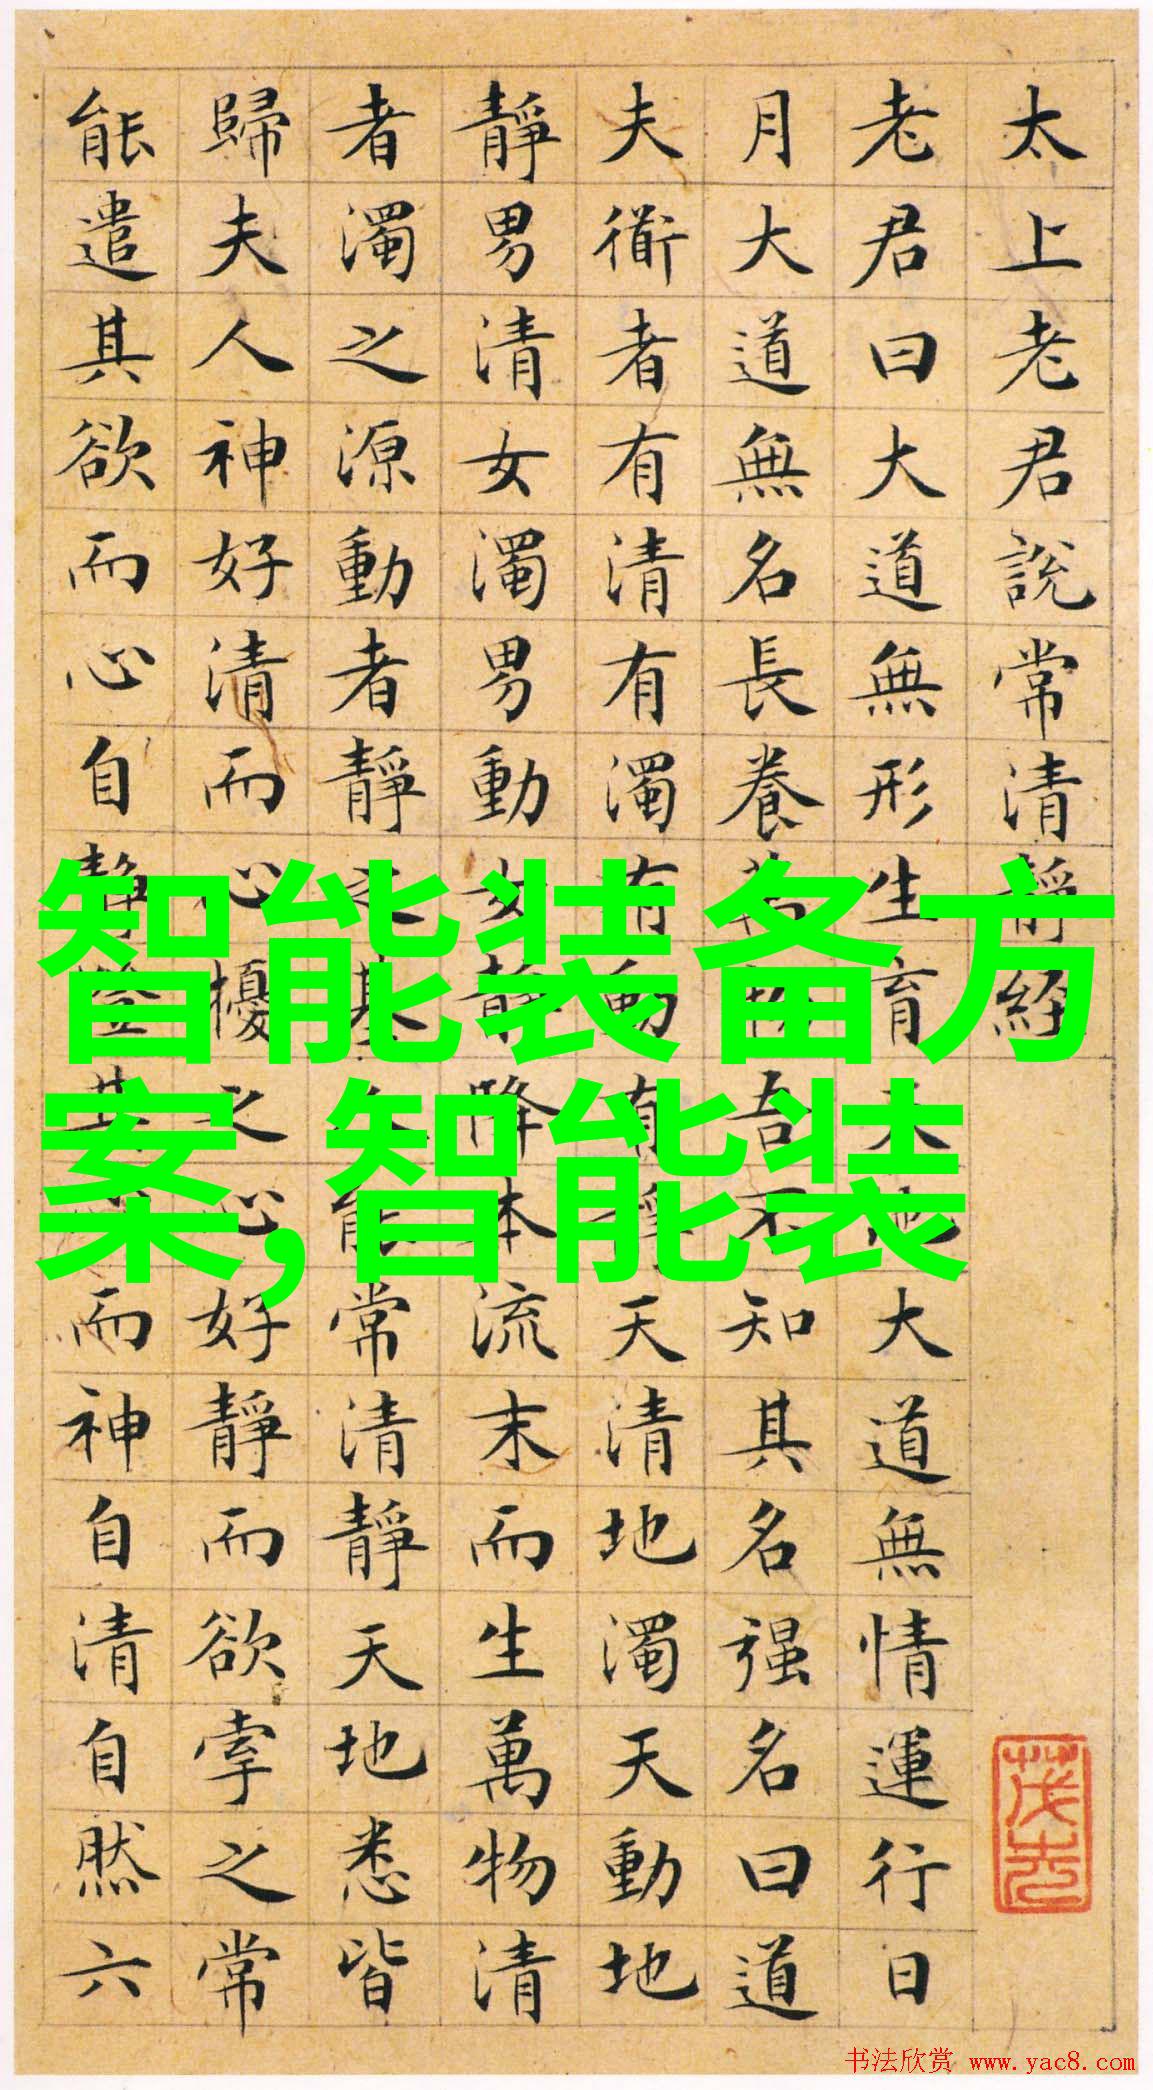 太上老君說常清靜經
老君曰大道無形生育天地大道無情運行日
月大道無名長養萬物吾不知其名强名曰道
夫衜者有清有濁有動有靜天清地濁天動地
靜男清女濁男動女靜降本流末而生萬物清
者濁之源動者靜之基人能常清靜天地悉皆
歸夫人神好清而心擾之心好靜而欲牽之常
能遣其欲而心自靜澄其心而神自清自然六
智能装备方
案,智能装
书法欣赏 www.yac8.com